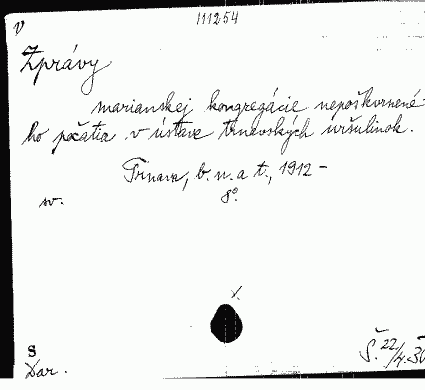 V
111254
Zprávy
marianskej kongregácie nepoškvrnené-
ho počatia v ústave trnavských uršulínok.
Trnava, b. n. a t., 1912 -
sv. 8°
S
Dar.
Š. 22/4.-30